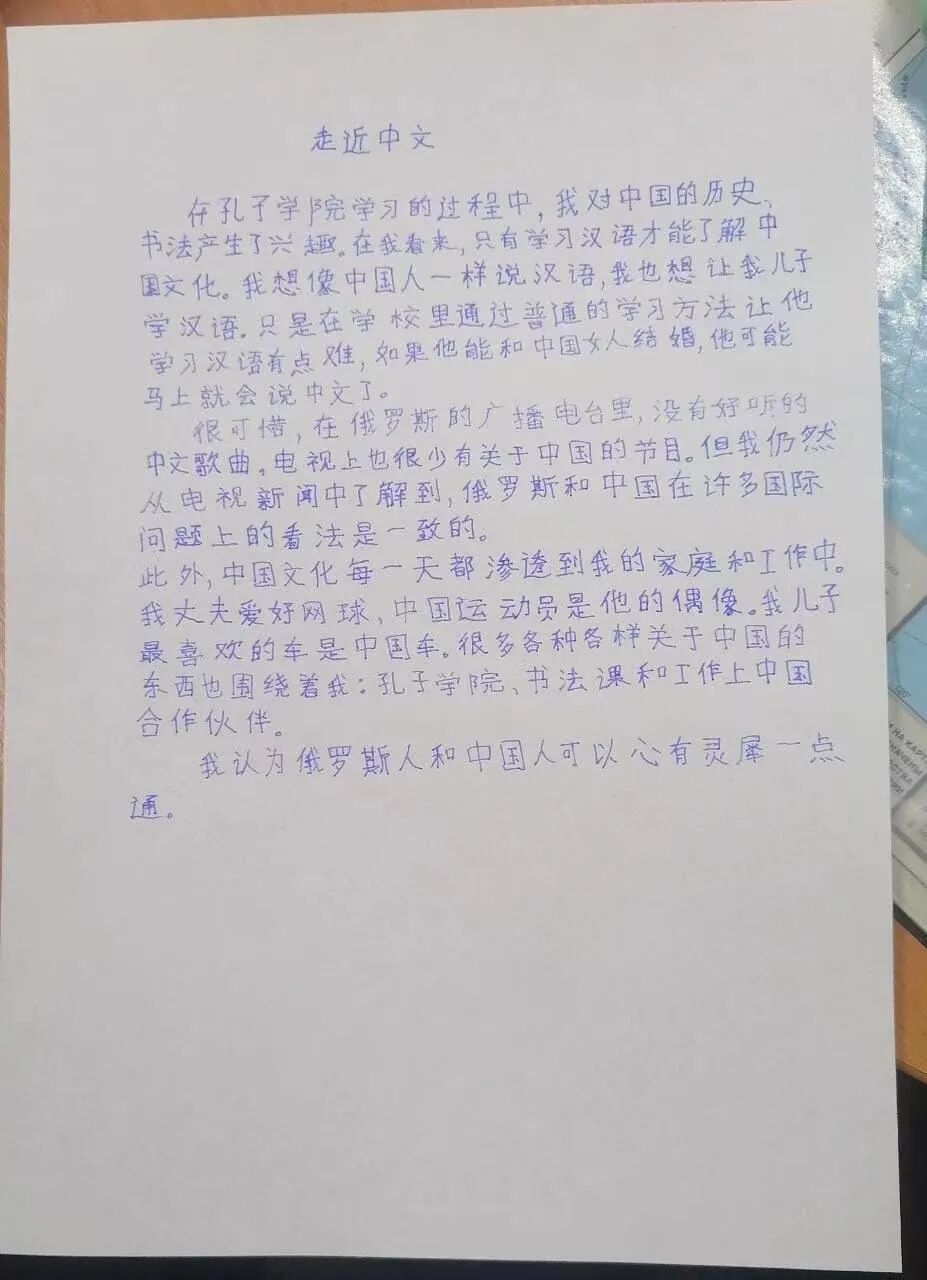 走近中文
在孔子学院学习的过程中，我对中国的历史、
书法产生了兴趣。在我看来，只有学习汉语才能了解中
国文化。我想像中国人一样说汉语，我也想让我儿子
学汉语．只是在学校里通过普通的学习方法让他
学习汉语有点难，如果他能和中国女人结婚，他可能
马上就会说中文了。
很可惜，在俄罗斯的广播电台里，没有好听的
中文歌曲。电视上也很少有关于中国的节目。但我仍然
从电视新闻中了解到，俄罗斯和中国在许多国际
问题上的看法是一致的。
此外，中国文化每一天都渗透到我的家庭和工作中。
我丈夫爱好网球，中国运动员是他的偶像。我儿子
最喜欢的车是中国车。很多各种各样关于中国的
东西也围绕着我：孔子学院、书法课和工作上中国
合作伙伴。
我认为俄罗斯人和中国人可以心有灵犀一点
通。
И НА КАРТ